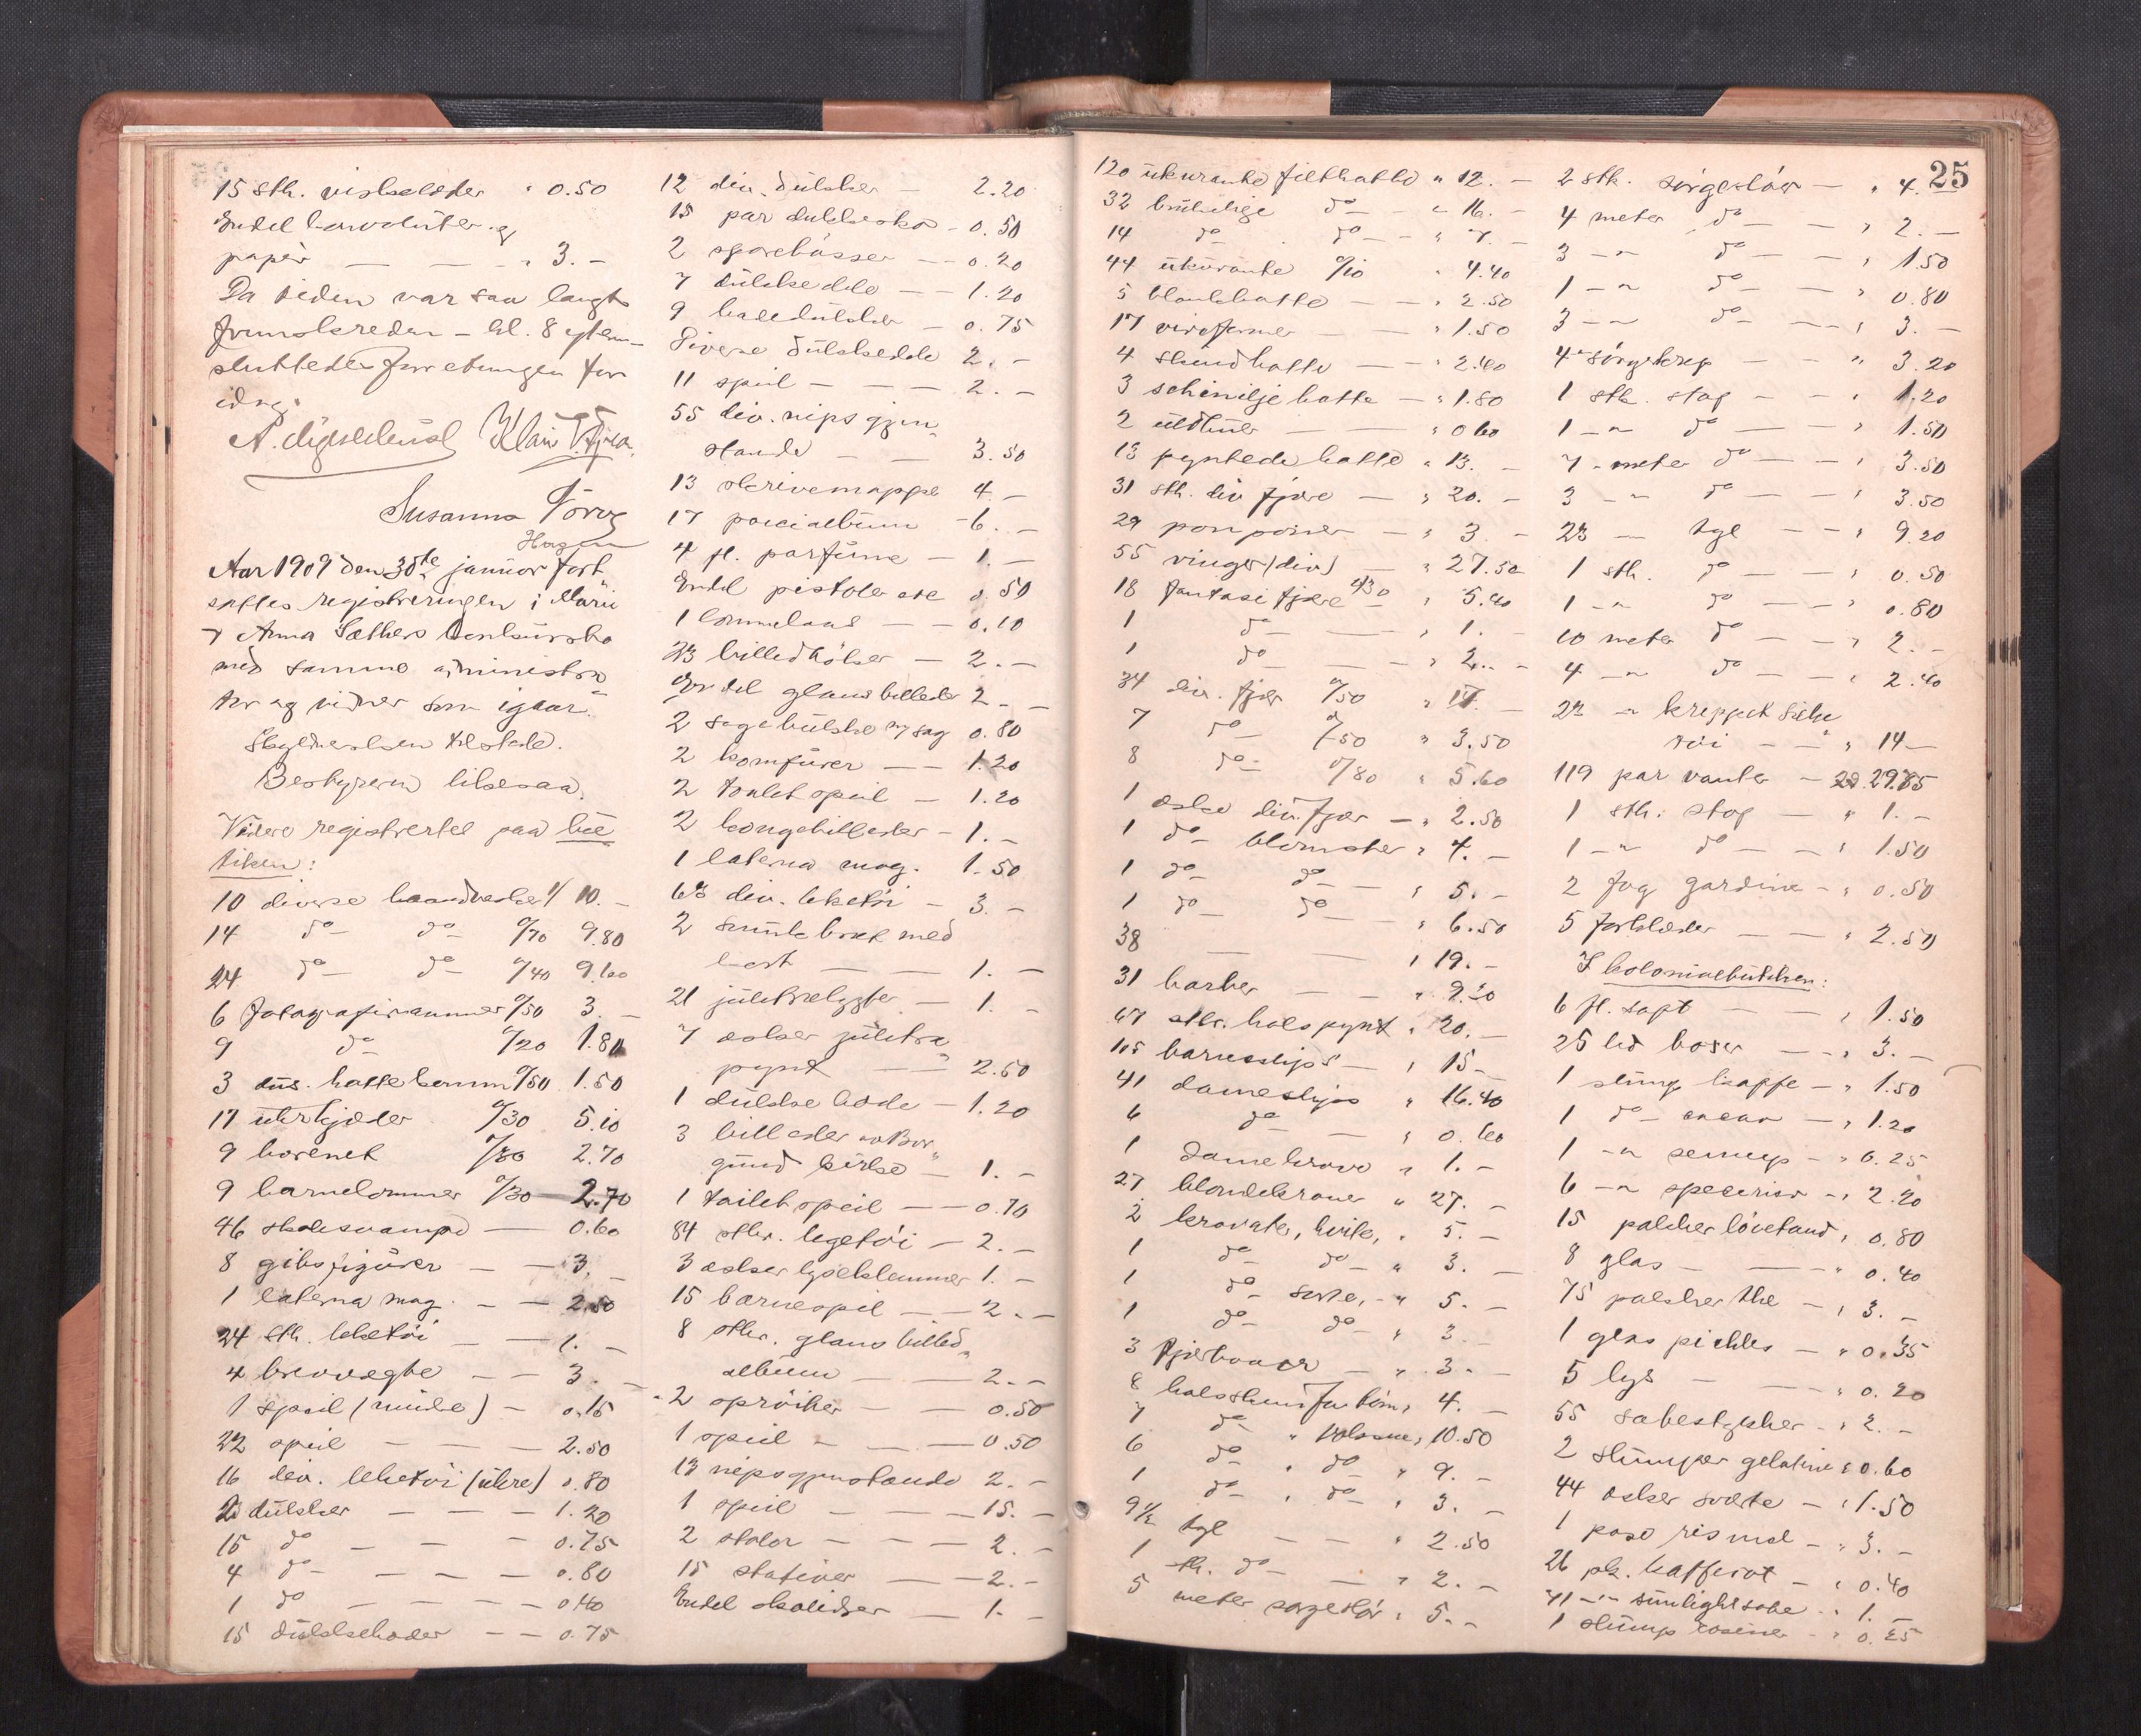 15 stk. viskelæder " 0.50
Endel konvoluter og
papir — — " 3.-
Da tiden var saa langt
fremskreden – kl. 8 eftem –
sluttedes forretningen for
idag.
Susanna Törvg
Hagen
Aar 1909 den 30te januar fort
sattes registreringen i Marie
& Anna Sæthers konkursbo
med samme administra
tor og vidner som igaar.
Skyldnersken tilstede.
Bestyreren likesaa.
Videre registrertes paa bu
tiken:
10 diverse haandvesker 1/ 10.-
14 do do 0/70 9.80
24 do do 0/40 9.60
6 fotografirammer 0/50 3.-
9 do 0/20 1.80
3 dus. hattebemm 0/50 1.50
17 uhrkjæder 0/30 5.10
9 do 2.70
9 barnelommer 0/30 2.70
46 skolesvampe — 0.60
8 gibsfigurer — — 3.-
1 laterna mag. — — 2.50
24 stk. leketöi — 1.-
4 brevvegte — — 3.-
1 speil (mindre) — 0.15
22 speil — — — 2.50
16 div. leketöi (uhre) 0.80
dukker — — — 1.20
15 do — — — 0.75
4 do — — — 0.80
1 do — — — 0.40
15 dukkehoder — — 0.75
12 div. dukker — 2.20
15 par dukkesko — 0.50
2 sparebösser — — 0.20
7 dukkedele — — 1.20
9 badedukker — 0.75
Diverse dukkedele 2.-
11 speil — — — 2.-
55 div. nipsgjen
stande — — 3.50
13 skrivemappe 4.-
17 poesialbum — 6.-
4 fl. parfüme — 1.-
Endel pistoler etc 0.50
1 lommelaas — — 0.10
23 billedbøker — 2.-
Endel glansbilleder 2.-
2 sagebukke og sag 0.80
2 komfürer — — 1.20
2 toiletspeil — 1.20
2 kongebilleder — 1.-
1 laterna mag. 1.50
63 div. leketöi — 3.-
2 smule bræt med
kost — — 1.-
21 juletrælygter — 1.-
7 æsker juletræ
pynt — — 2.50
1 dukkehode — 1.20
3 billeder av Bor
gund kirke — 1.-
1 toiletspeil — — 0.70
84 stkr. legetöi — 2.-
3 æsker lyseklemmer 1.-
15 barnespil — — 2.-
8 stkr. glansbilled
album — — 2.-
2 — — 0.50
1 speil — — — 0.50
13 nipsgjenstande 2.-
1 speil — — — 15.-
2 stoler — — — 2.-
15 stativer — — 2.-
Endel skolidser — 1.-
25
120 ukurante filthatte " 12.-
32 brukelige do — " 16.-
14 do do — " 7.-
44 ukurante 0/10 " 4.40
5 blankhatte — — " 2.50
17 — — " 1.50
4 skindhatte — — " 2.40
3 schenilje hatte — " 1.80
2 — — " 0.60
13 pyntede hatte " 13.-
31 stk. div fjære — " 20.-
29 ponponer — " 3.-
55 vinger (div) — " 27.50
18 fantasi fjære 0/30 " 5.40
1 do — — " 1.-
1 do — — " 2.-
34 div. fjær 0/50 " 17.-
7 do 0/50 " 3.50
8 do 0/80 " 5.60
1 æske div. fjær — " 2.50
1 do blomster " 4.-
1 do do — " 5.-
1 do do — " 6.50
38 — — " 19.-
31 barber — — " 9.30
67 stkr. halspynt " 20.-
105 barneslips — " 15.-
41 dameslips " 16.40
6 do — " 0.60
1 damekrave " 1.-
27 blondekraver " 27.-
2 kravater, hvite, " 5.-
1 do do — " 3.-
1 do sorte, — " 5.-
1 do do — " 3.-
3 fjærboaer — " 3.-
8 halsskind for börn " 4.-
7 do " voksne " 10.50
6 do " do " 9.-
1 do " do " 3.-
9½ tyl — — " 2.50
1 stk. do — — " 2.-
5 meter sørgeslör " 5.-
2 stk. sörgeslör — " 4.-
4 meter do — — " 2.-
3 — " do — — " 1.50
1 — " do — " 0.80
3 — " do — — " 3.-
4 " sörgekrep — — " 3.20
1 stk. stof — — " 1.20
1 — " do — — " 1.50
7 – meter do — — " 3.50
3 — " do — — " 3.50
23 — tyl — — " 9.20
1 stk. do — — " 0.50
1 — " do — — " 0.80
10 meter do — — " 2.-
4 — " do — — " 2.40
22 — " kreppet silke
töi — — " 14.-
119 par vanter — 29.85
1 stk. stof — " 1.-
1 — " do — — " 1.50
2 fag gardiner — " 0.50
5 forklæder — — " 2.50
I kolonialbutikken:
6 fl. saft — — " 1.50
25 led böser — — " 3.-
1 slump kaffe — " 1.50
1 do cacao — " 1.20
1 — " sennep — " 0.25
6 — " specerier — " 2.20
15 pakker lövetand " 0.80
8 glas — — " 0.40
75 pakker the — " 3.-
1 glas pickles — " 0.35
5 lys — — " 0.20
55 sæbestykker — " 2.-
2 slumper gelatine " 0.60
44 æsker sværte — " 1.50
1 pose rismel — " 3.-
26 pk. kaffirot — " 0.40
41 — " sunlightsæbe " 1.-
1 slump rosiner — " 0.25